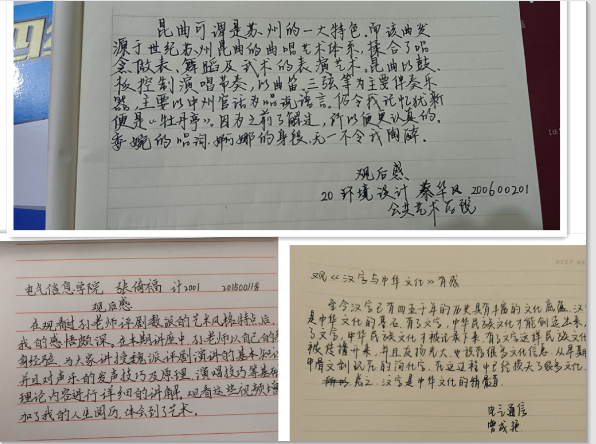 昆曲可谓是苏州的一大特色。而该曲发
源于世纪苏州昆曲的曲唱艺术体系，揉合了唱
念做表、舞蹈及武术的表演艺术。昆曲以鼓、
板控制演唱节奏，以曲笛、三弦等为主要伴奏乐
器，主要以中州官话为唱说语言。仍令我记忆犹新
便是“牡丹亭”。因为之前了解过，所以便更认真的。
委婉的唱词，婀娜的身段，无一不令我陶醉。
观后感
20 环境设计 秦华 200600201
公共艺术学院
电气信息学院 张倚福 计2001
观后感
在观看过孔老师评剧数派的艺术风格特点后，
我的感悟颇深，在本期讲座中，孔老师以自己的
身经验，为大家讲授魏派评剧演讲的基本
并且对声乐的发声技巧及原理，演唱技巧等基
理论内容进行详细的讲解。观看这些视频
加了我的人生阅历，体会到了艺术。
观《汉字与中华文化》有感
当今汉字已有四五千年的历史具有丰富的文化底蕴。汉
是中华文化的基石。有了文字，中华民族文化才能创造出来，
了文字，中华民族文化才被记录下来。有了文字这样民族文化
被传播开来，并且发扬光大，也
甲骨文到现在的简化字，在这过程中
总之，汉字是中华文化的
电气通信
曾成艳